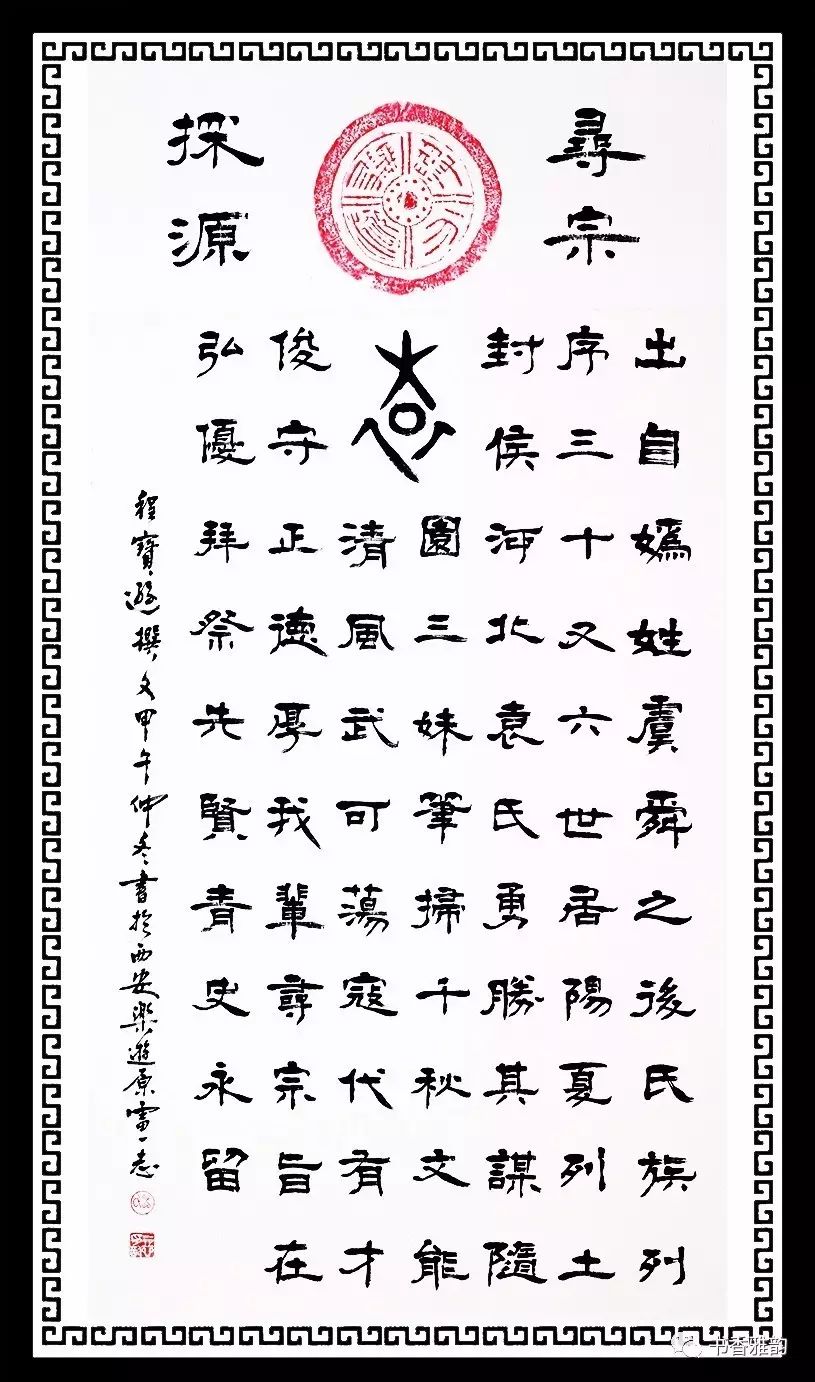 尋宗
探源
出自嬀姓虞舜之後氏族列
序三十又六世居陽夏列土
封侯河北袁氏勇勝其謀隨
園三妹筆掃千秋文能
清風武可蕩寇代有才
俊守正德厚我輩尋宗旨在
弘優拜祭先賢青史永留
程寶撰文甲午仲冬書於西安樂遊原
书香雅韵